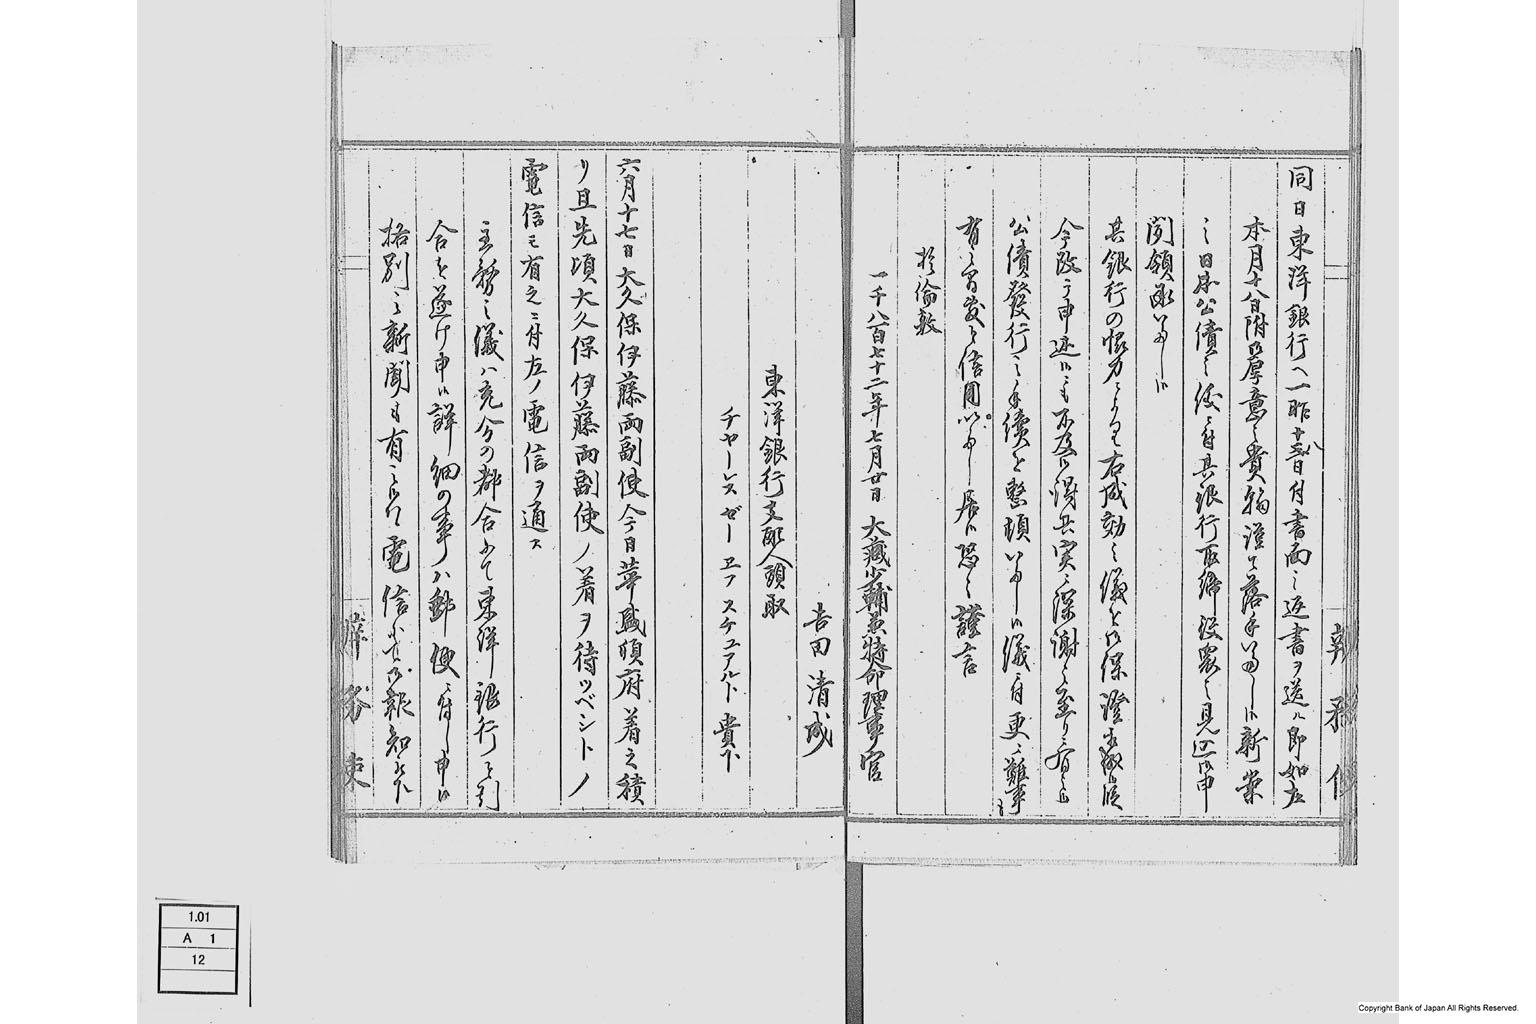 同日東洋銀行ヘ一昨十八日付書面之返書ヲ送ル即如左
本月十八日附御厚意之貴翰謹而落手いたし候新業
之日本公債之儀ニ付其銀行取締役衆之見込御申
聞領承いたし候
其銀行の懐力よりして右成効之儀を御保證
今改而申述候
公債發行之手續を整頓いたし候儀ニ付更ニ難事
有之間敷と信用いたし居候恐々謹言
於倫敦
一千八百七十二年七月廿日 大藏少輔兼特命理事官
吉田清成
東洋銀行支配人頭取
チャーレス ゼー エフ スチュアルト 貴下
六月十七日大久保伊藤両副使今日華盛頓府着之積
リ且先頃大久保伊藤両副使ノ着ヲ待ツベシトノ
電信モ有之ニ付左ノ電信ヲ通ス
主務之儀ハ充分の都合ニて東洋銀行と引
合を遂け申候詳細の事ハ郵便ニ付し申候
格別之新聞も有之候ハヽ電信
1.01
A 1
12
Copyright Bank of Japan All Rights Reserved.